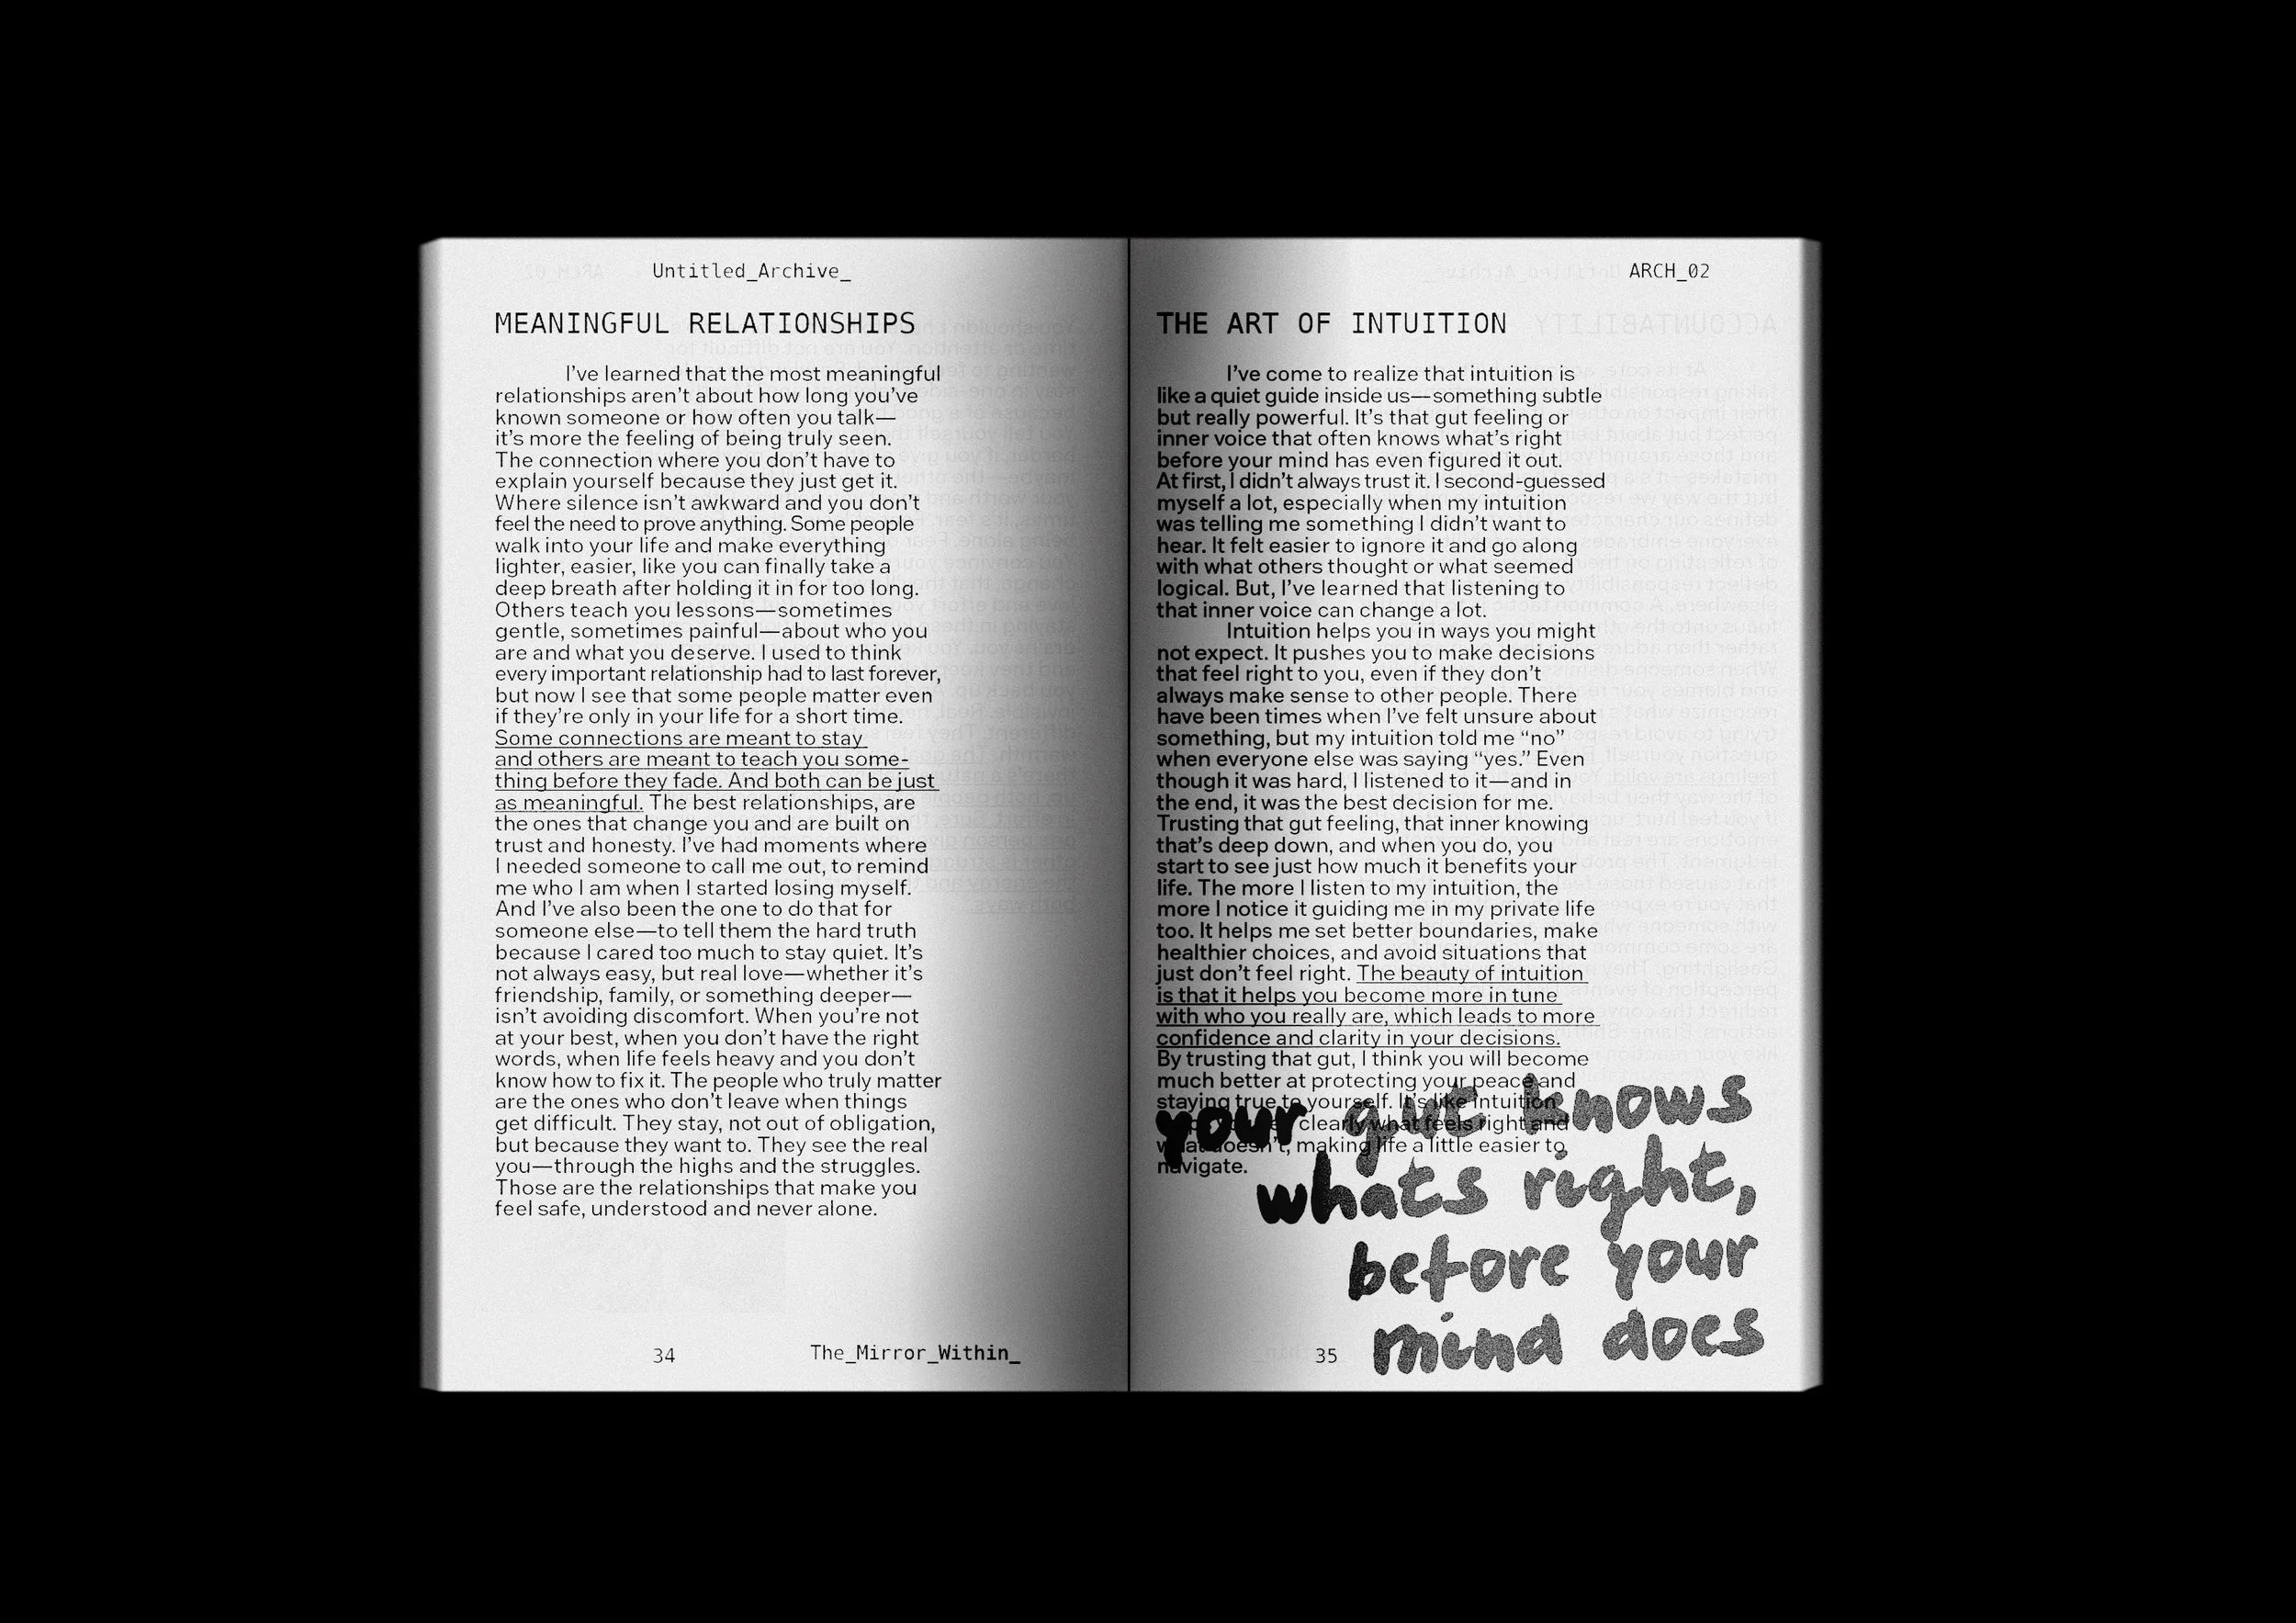 Untitled_Archive_
MEANINGFUL RELATIONSHIPS
I've learned that the most meaningful
relationships aren't about how long you've
known someone or how often you talk—
it's more the feeling of being truly seen.
The connection where you don't have to
explain yourself because they just get it.
Where silence isn't awkward and you don't
feel the need to prove anything. Some people
walk into your life and make everything
lighter, easier, like you can finally take a
deep breath after holding it in for too long.
Others teach you lessons—sometimes
gentle, sometimes painful—about who you
are and what you deserve. I used to think
every important relationship had to last forever,
but now I see that some people matter even
if they're only in your life for a short time.
Some connections are meant to stay
and others are meant to teach you some-
thing before they fade. And both can be just
as meaningful. The best relationships, are
the ones that change you and are built on
trust and honesty. I've had moments where
I needed someone to call me out, to remind
me who I am when I started losing myself.
And I've also been the one to do that for
someone else—to tell them the hard truth
because I cared too much to stay quiet. It's
not always easy, but real love—whether it's
friendship, family, or something deeper—
isn't avoiding discomfort. When you're not
at your best, when you don't have the right
words, when life feels heavy and you don't
know how to fix it. The people who truly matter
are the ones who don't leave when things
get difficult. They stay, not out of obligation,
but because they want to. They see the real
you—through the highs and the struggles.
Those are the relationships that make you
feel safe, understood and never alone.
34
The_Mirror_Within_
ARCH_02
THE ART OF INTUITION
I've come to realize that intuition is
like a quiet guide inside us—something subtle
but really powerful. It's that gut feeling or
inner voice that often knows what's right
before your mind has even figured it out.
At first, I didn't always trust it. I second-guessed
myself a lot, especially when my intuition
was telling me something I didn't want to
hear. It felt easier to ignore it and go along
with what others thought or what seemed
logical. But, I've learned that listening to
that inner voice can change a lot.
Intuition helps you in ways you might
not expect. It pushes you to make decisions
that feel right to you, even if they don't
always make sense to other people. There
have been times when I've felt unsure about
something, but my intuition told me “no”
when everyone else was saying “yes.” Even
though it was hard, I listened to it—and in
the end, it was the best decision for me.
Trusting that gut feeling, that inner knowing
that's deep down, and when you do, you
start to see just how much it benefits your
life. The more I listen to my intuition, the
more I notice it guiding me in my private life
too. It helps me set better boundaries, make
healthier choices, and avoid situations that
just don't feel right. The beauty of intuition
is that it helps you become more in tune
with who you really are, which leads to more
confidence and clarity in your decisions.
By trusting that gut, I think you will become
much better at protecting your peace and
staying true to yourself. It's like intuition
clearly what feels right and
what doesn't, making life a little easier to
navigate.
your gut knows
whats right,
before your
mind does
35